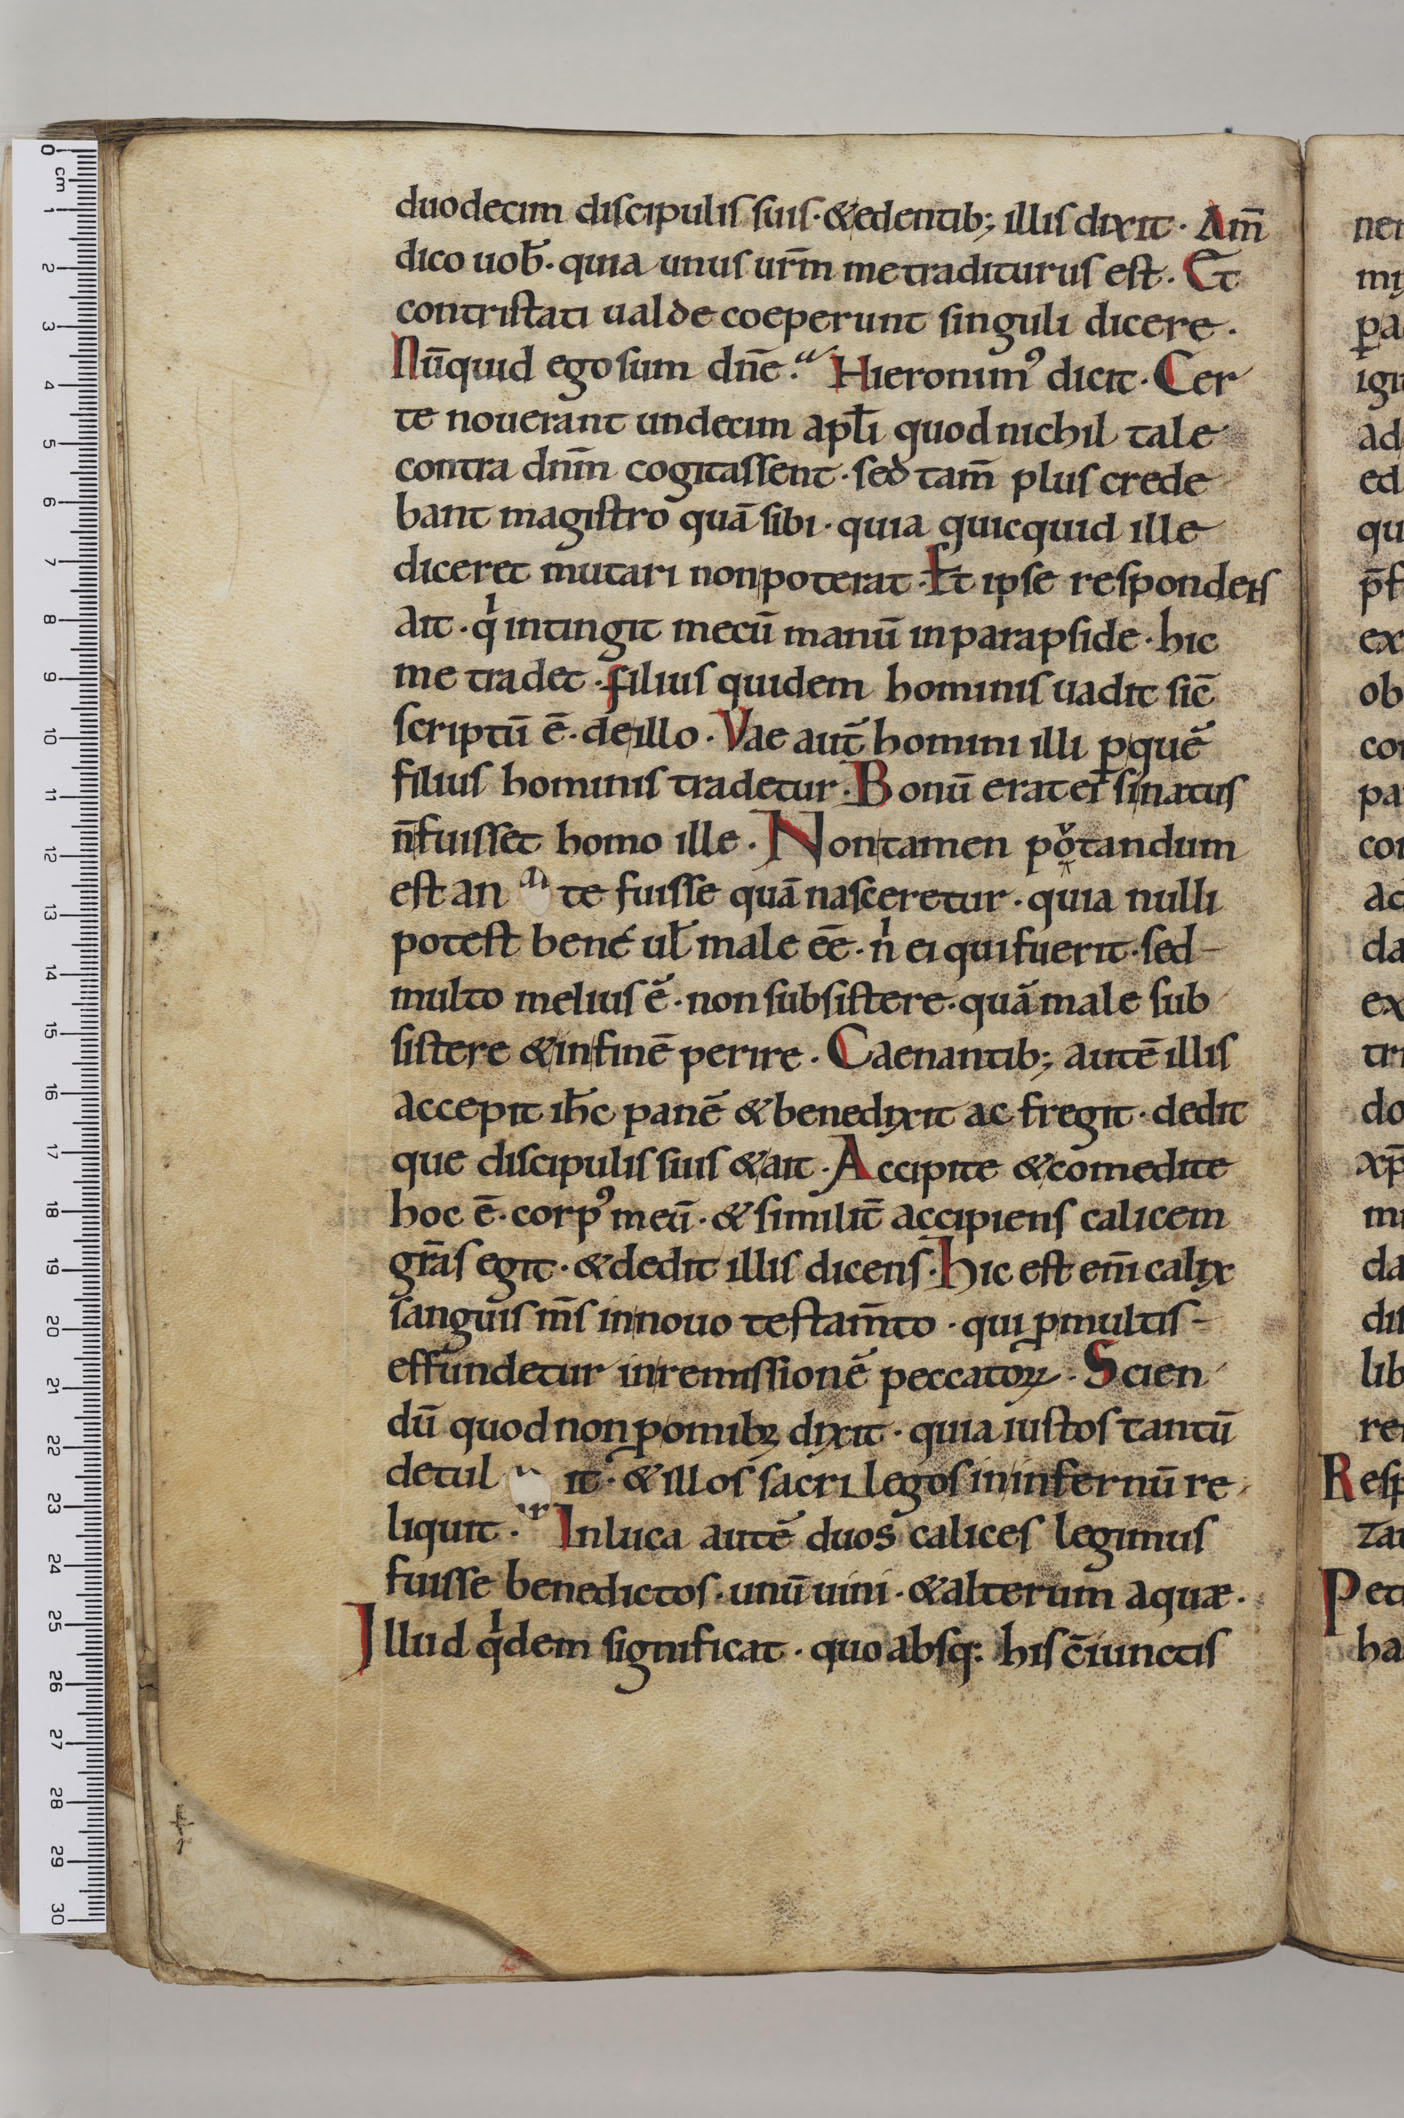 duodecim discipulis suis·&edentib; illis dixit· Am̅
dico uob̅· quia unus ur̅m me traditurus est· Et
contristati ualde coeperunt singuli dicere·
Nu̅quid ego sum dn̅e· Hieronim⁹ dicit· Cer
te nouerant undecim apl̅i quod nichil tale
contra dnm̅ cogitassent· sed tam̅ plus crede
bant magistro qua̅ sibi· quia quicquid ille
diceret mutari non poterat· Et ipse respondens
ait· qͥ intingit mecu̅ manu̅ in parapside· hic
me tradet· filius quidem hominis uadit sic̅
scriptu̅ e̅· de illo· Vae aut̅ homini illi ꝑ que̅
filius hominis tradetur· Bonu̅ erat ei si natus
n̅ fuisset homo ille· Non tamen potandum
est an te fuisse qua̅ nasceretur· quia nulli
potest bene ul̅ male ee̅· nͥ ei qui fuerit· sed
multo melius e̅· non subsistere· qua̅ male sub
sistere & in fine̅ perire· Caenantib; aute̅ illis
accepit ih̅c pane̅ & benedixit ac fregit· dedit
que discipulis suis & ait· Accipite & comedite
hoc e̅· corp⁹ meu̅· & similit̅ accipiens calicem
gr̅as egit· & dedit illis dicens· Hic est eni̅ calix
sanguis m̅s in nouo testam̅to· qui ꝑ multis
effundetur in remissione̅ peccatoꝝ· Scien
du̅ quod non ꝑ omnibꝫ dixit· quia iustos tantu̅
detul it· & illos sacrilegos in infernu̅ re
liquit· In luca aute̅ duos calices legimus
fuisse benedictos· unu̅ uini· & alterum aquæ·
Illud qͥdem significat· quo absq: his c̅iunctis